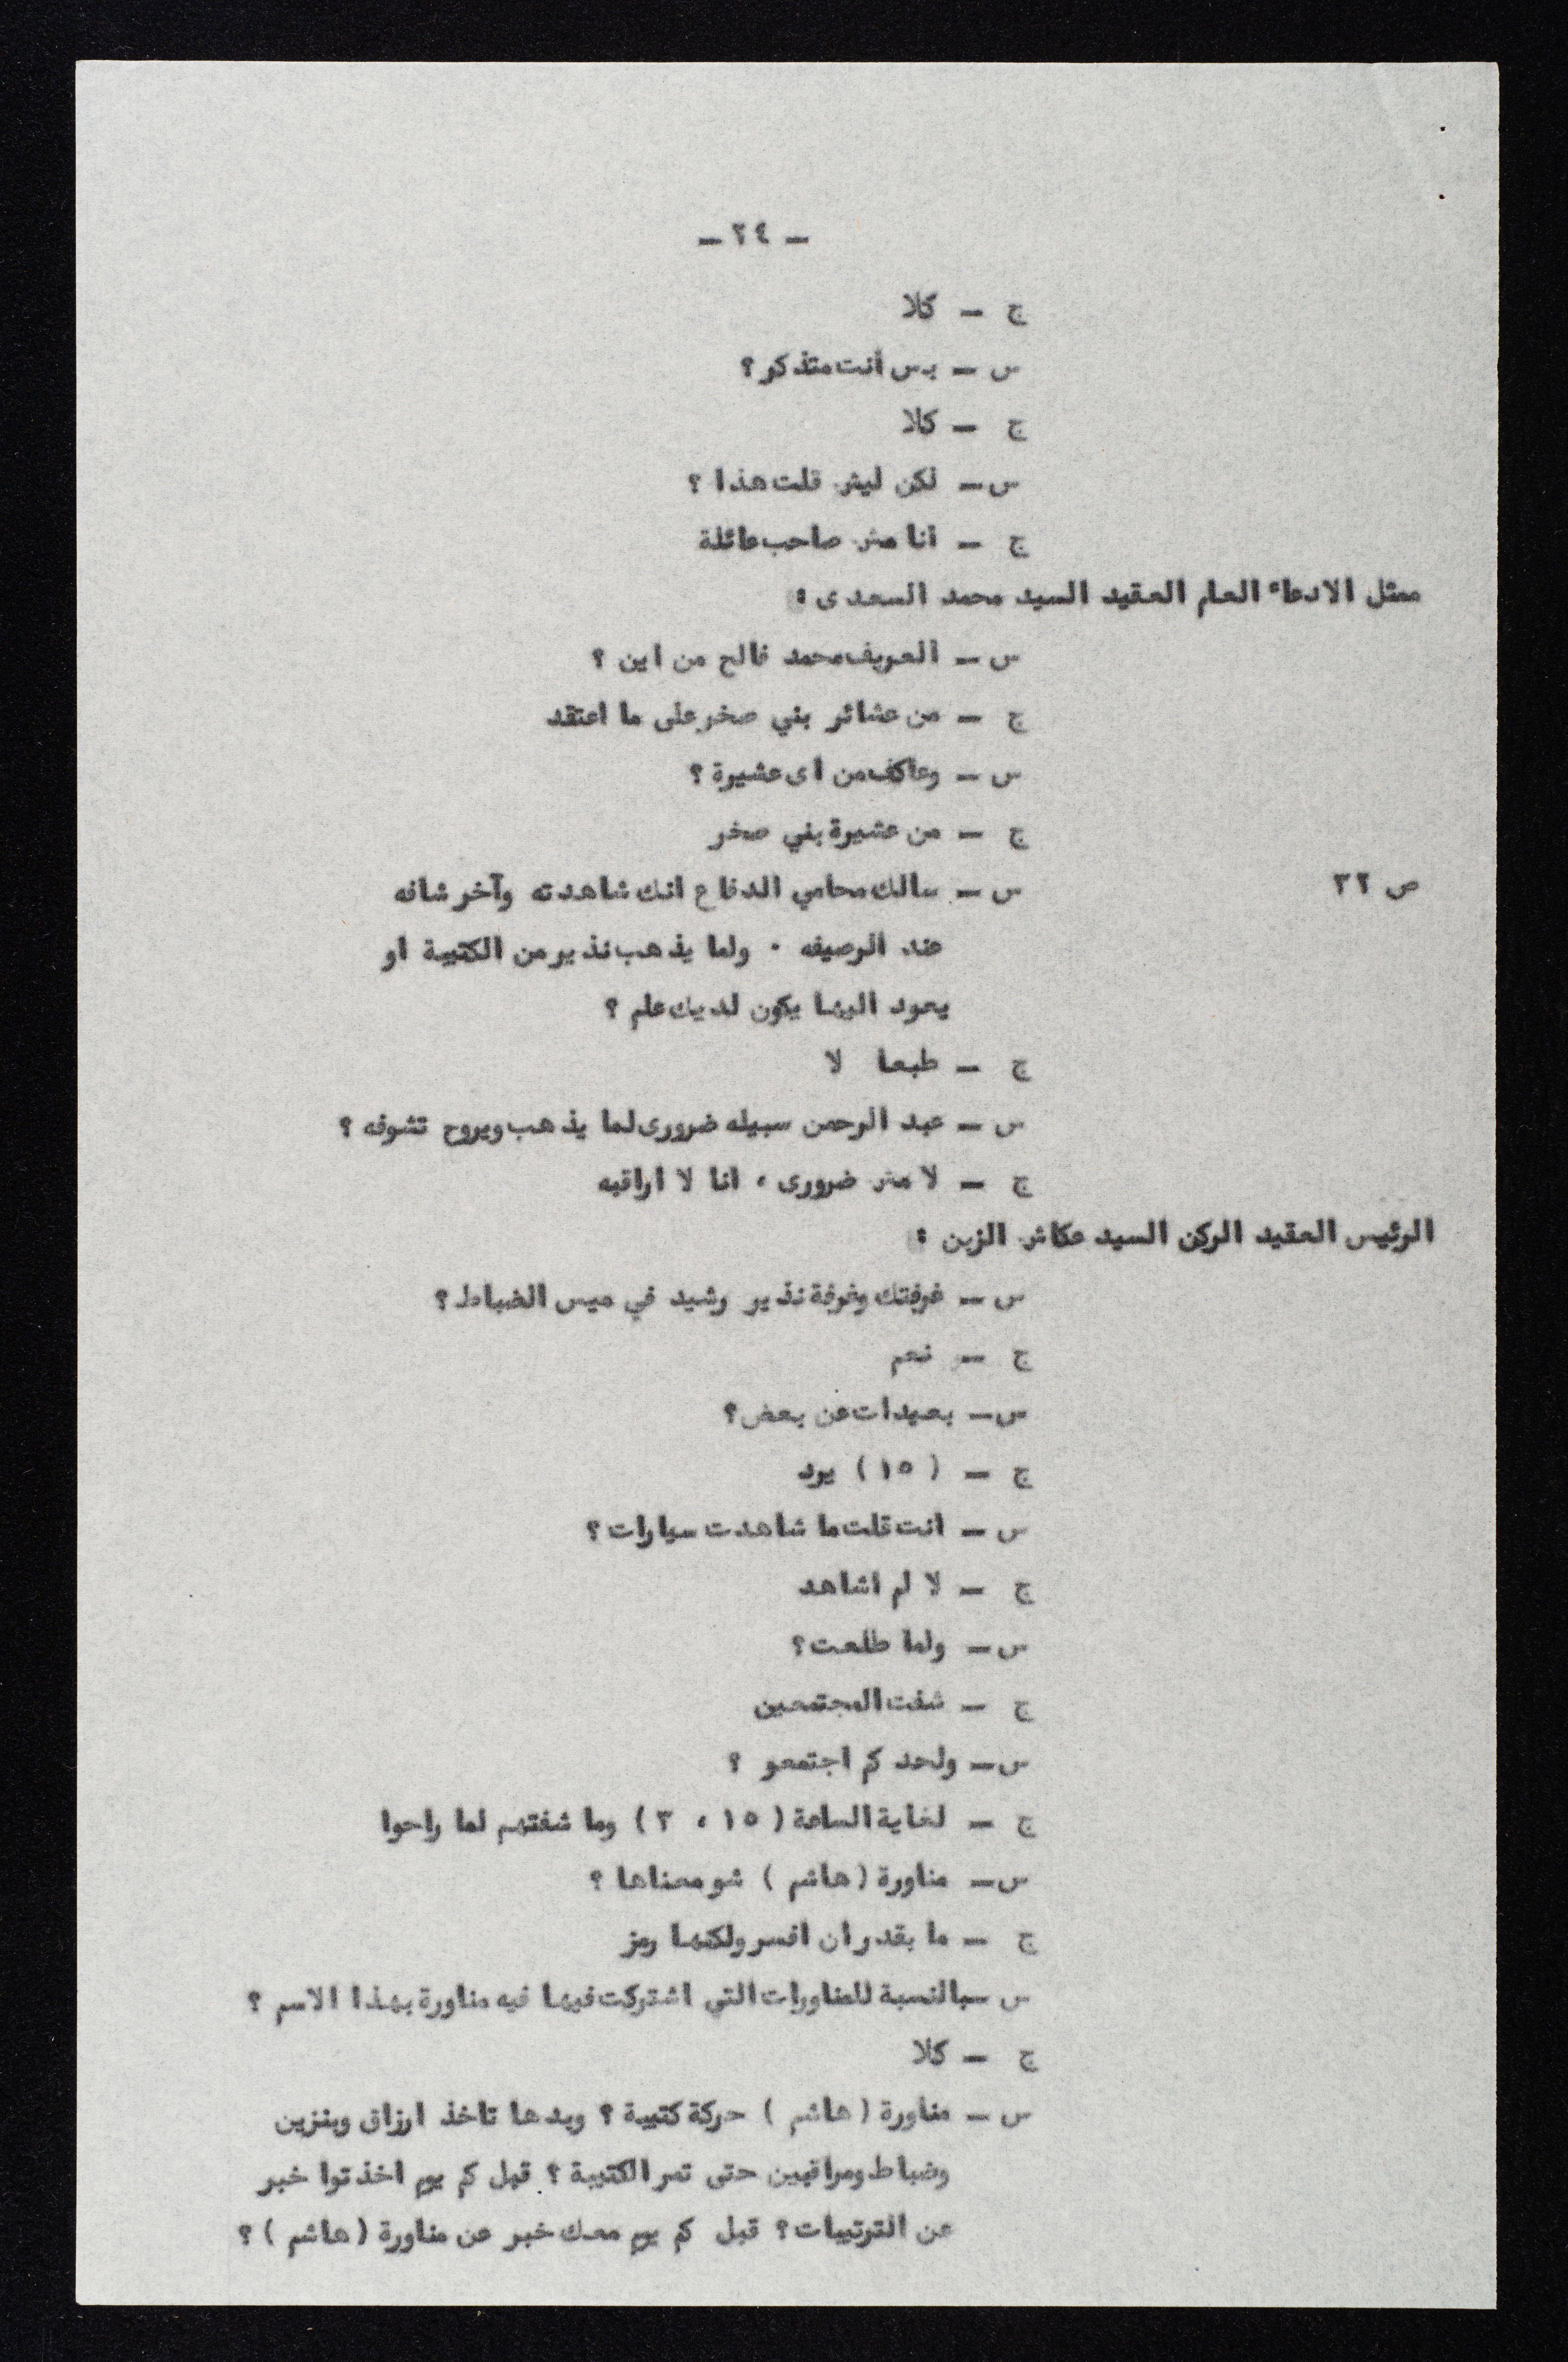 – ٢٤ –
ج – كلا
س – بس أنت متذكر ؟
ج – كلا
س – لكن ليش قلت هذا ؟
ج – انا مش صاحب عائلة
ممثل الادعاء العام العقيد السيد محمد السعدى :
س – العريف محمد فالح من اين ؟
ج – من عشائر بني صخر على ما اعتقد
س – وعاكف من اى عشيرة ؟
ج – من عشيرة بني صخر
ص ٢٢ س – سالك محامي الدفاع انك شاهدته وآخر شافه
عند الرصيفه . ولما يذهب نذير من الكتيبة او
يعود اليها يكون لديك علم ؟
ج – طبعا لا
س – عبد الرحمن سبيله ضرورى لما يذهب ويروح تشوفه ؟
ج – لا مش ضرورى ، انا لا اراقبه
الرئيس العقيد الركن السيد عكاش الزبن :
س – غرفتك وغرفة نذير رشيد في ميس الضباط ؟
ج – نعم
س – بعيدات عن بعض ؟
ج – ( ١٥ ) يرد
س – انت قلت ما شاهدت سيارات ؟
ج – لا لم اشاهد
س – ولما طلعت ؟
ج – شفت المجتمعين
س – ولحد كم اجتمعو ؟
ج – لغاية الساعة ( ١٥ ، ٣ ) وما شفتهم لما راحوا
س – مناورة ( هاشم ) شو معناها ؟
ج – ما بقدر ان افسر ولكنها رمز
س – بالنسبة للمناورات التي اشتركت فيها فيه مناورة بهذا الاسم ؟
ج – كلا
س – مناورة ( هاشم ) حركة كتيبة ؟ وبدها تاخذ ارزاق وبنزين
وضباط ومراقبين حتى تمر الكتيبة ؟ قبل كم يوم اخذتوا خبر
عن الترتيبات ؟ قبل كم يوم معك خبر عن مناورة ( هاشم ) ؟